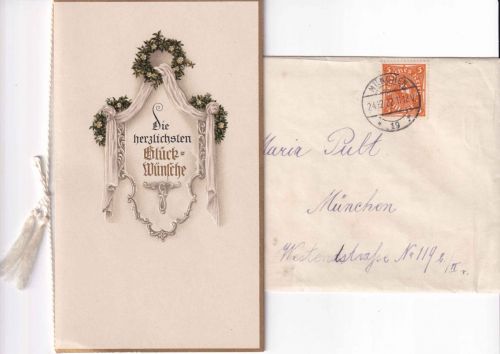 Die
herzlichsten
Glück-
Wünsche
MÜNCHEN
5
Maria Pult
München
Westendstraße No 119